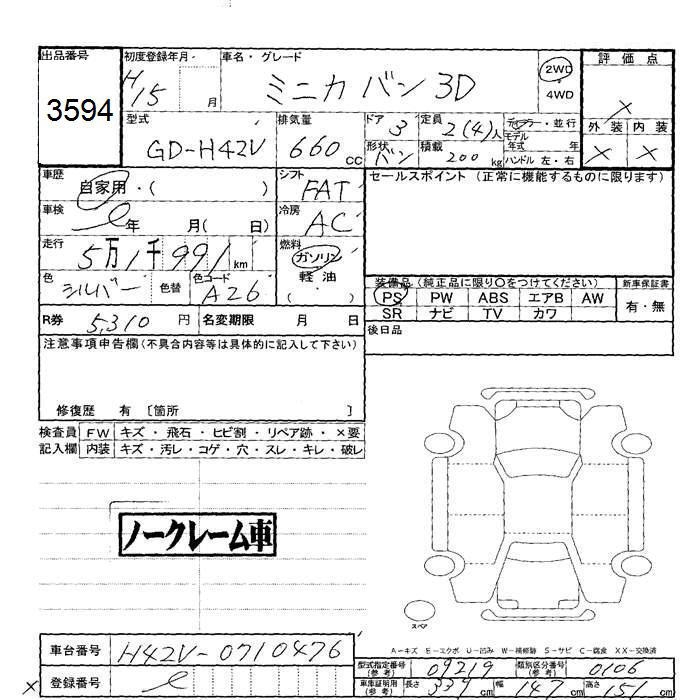 出品番号
3594
初度登録年月
H15 月
車名・グレード
ミニカ バン 3D
2WD
4WD
評価点
×
外装 内装
× ×
型式
GD-H42V
排気量
660 cc
ドア
3
形状
バン
定員
2(4)人
積載
200 kg
ディーラー・並行
モデル
年式 年
ハンドル 左・右
車歴
自家用・( )
シフト
FAT
セールスポイント (正常に機能するものに限ります)
車検
年 月( 日)
冷房
AC
走行
5万1千991km
燃料
ガソリン
軽油
( )
色
シルバー
色替
色コード
A26
装備品(純正品に限り○をつけてください)
新車保証書
PS PW ABS エアB AW
SR ナビ TV カワ
有・無
R券 5,310 円
名変期限 月 日
後日品
注意事項申告欄(不具合内容等は具体的に記入して下さい)
修復歴 有 [箇所 ]
検査員
記入欄
FW キズ・飛石・ヒビ割・リペア跡・×要
内装 キズ・汚レ・コゲ・穴・スレ・キレ・破レ
ノークレーム車
スペア
A-キズ E-エクボ U-凹み W-補修跡 S-サビ C-腐食 XX-交換済
車台番号 H42V-0710476
登録番号
×
型式指定番号
(参考)
09219
類別区分番号
(参考)
0106
車庫証明用
(参考)
長さ 339 cm 幅 147 cm 高さ 151 cm